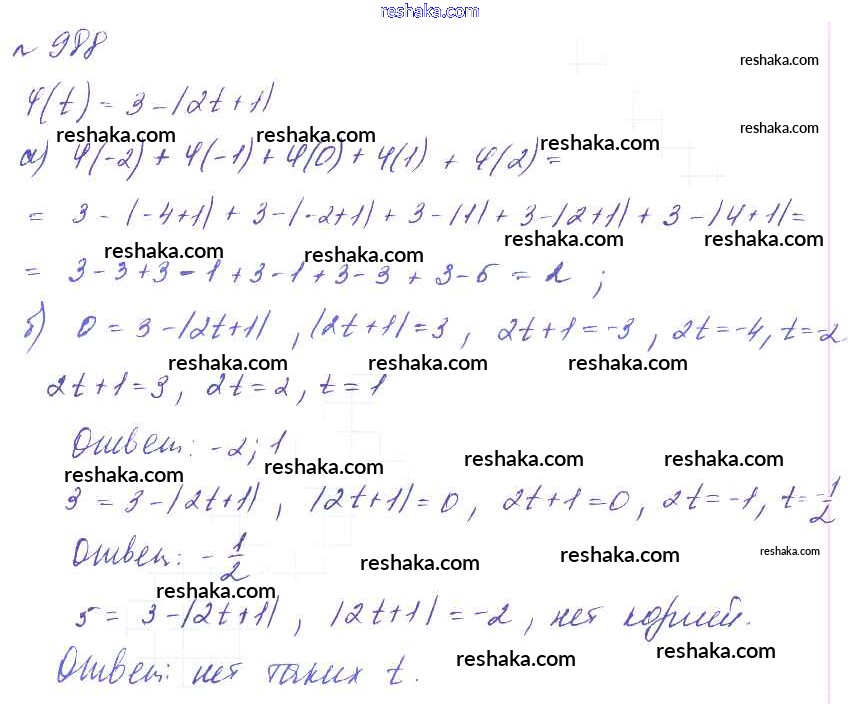 reshaka.com
№ 988
reshaka.com
φ(t) = 3 - |2t + 1|
reshaka.com reshaka.com reshaka.com reshaka.com
а) φ(-2) + φ(-1) + φ(0) + φ(1) + φ(2) =
= 3 - |-4+1| + 3 - |-2+1| + 3 - |1| + 3 - |2+1| + 3 - |4+1| =
reshaka.com reshaka.com reshaka.com reshaka.com
= 3 - 3 + 3 - 1 + 3 - 1 + 3 - 3 + 3 - 5 = 2 ;
б) 0 = 3 - |2t+1| , |2t+1| = 3 , 2t+1 = -3 , 2t = -4, t = -2
reshaka.com reshaka.com reshaka.com
2t+1 = 3, 2t = 2, t = 1
Ответ: -2; 1
reshaka.com reshaka.com reshaka.com reshaka.com
3 = 3 - |2t+1| , |2t+1| = 0, 2t+1 = 0, 2t = -1, t = -1/2
reshaka.com
Ответ: - 1/2
reshaka.com reshaka.com reshaka.com reshaka.com
5 = 3 - |2t+1| , |2t+1| = -2, нет корней.
reshaka.com reshaka.com
Ответ: нет таких t.